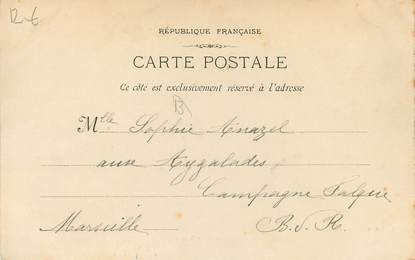 12-€
RÉPUBLIQUE FRANÇAISE
CARTE POSTALE
Ce côté est exclusivement réservé à l'adresse
B
Mlle Sophie Anazel
aux Aygalades
Campagne Falque
Marseille B.d.R.